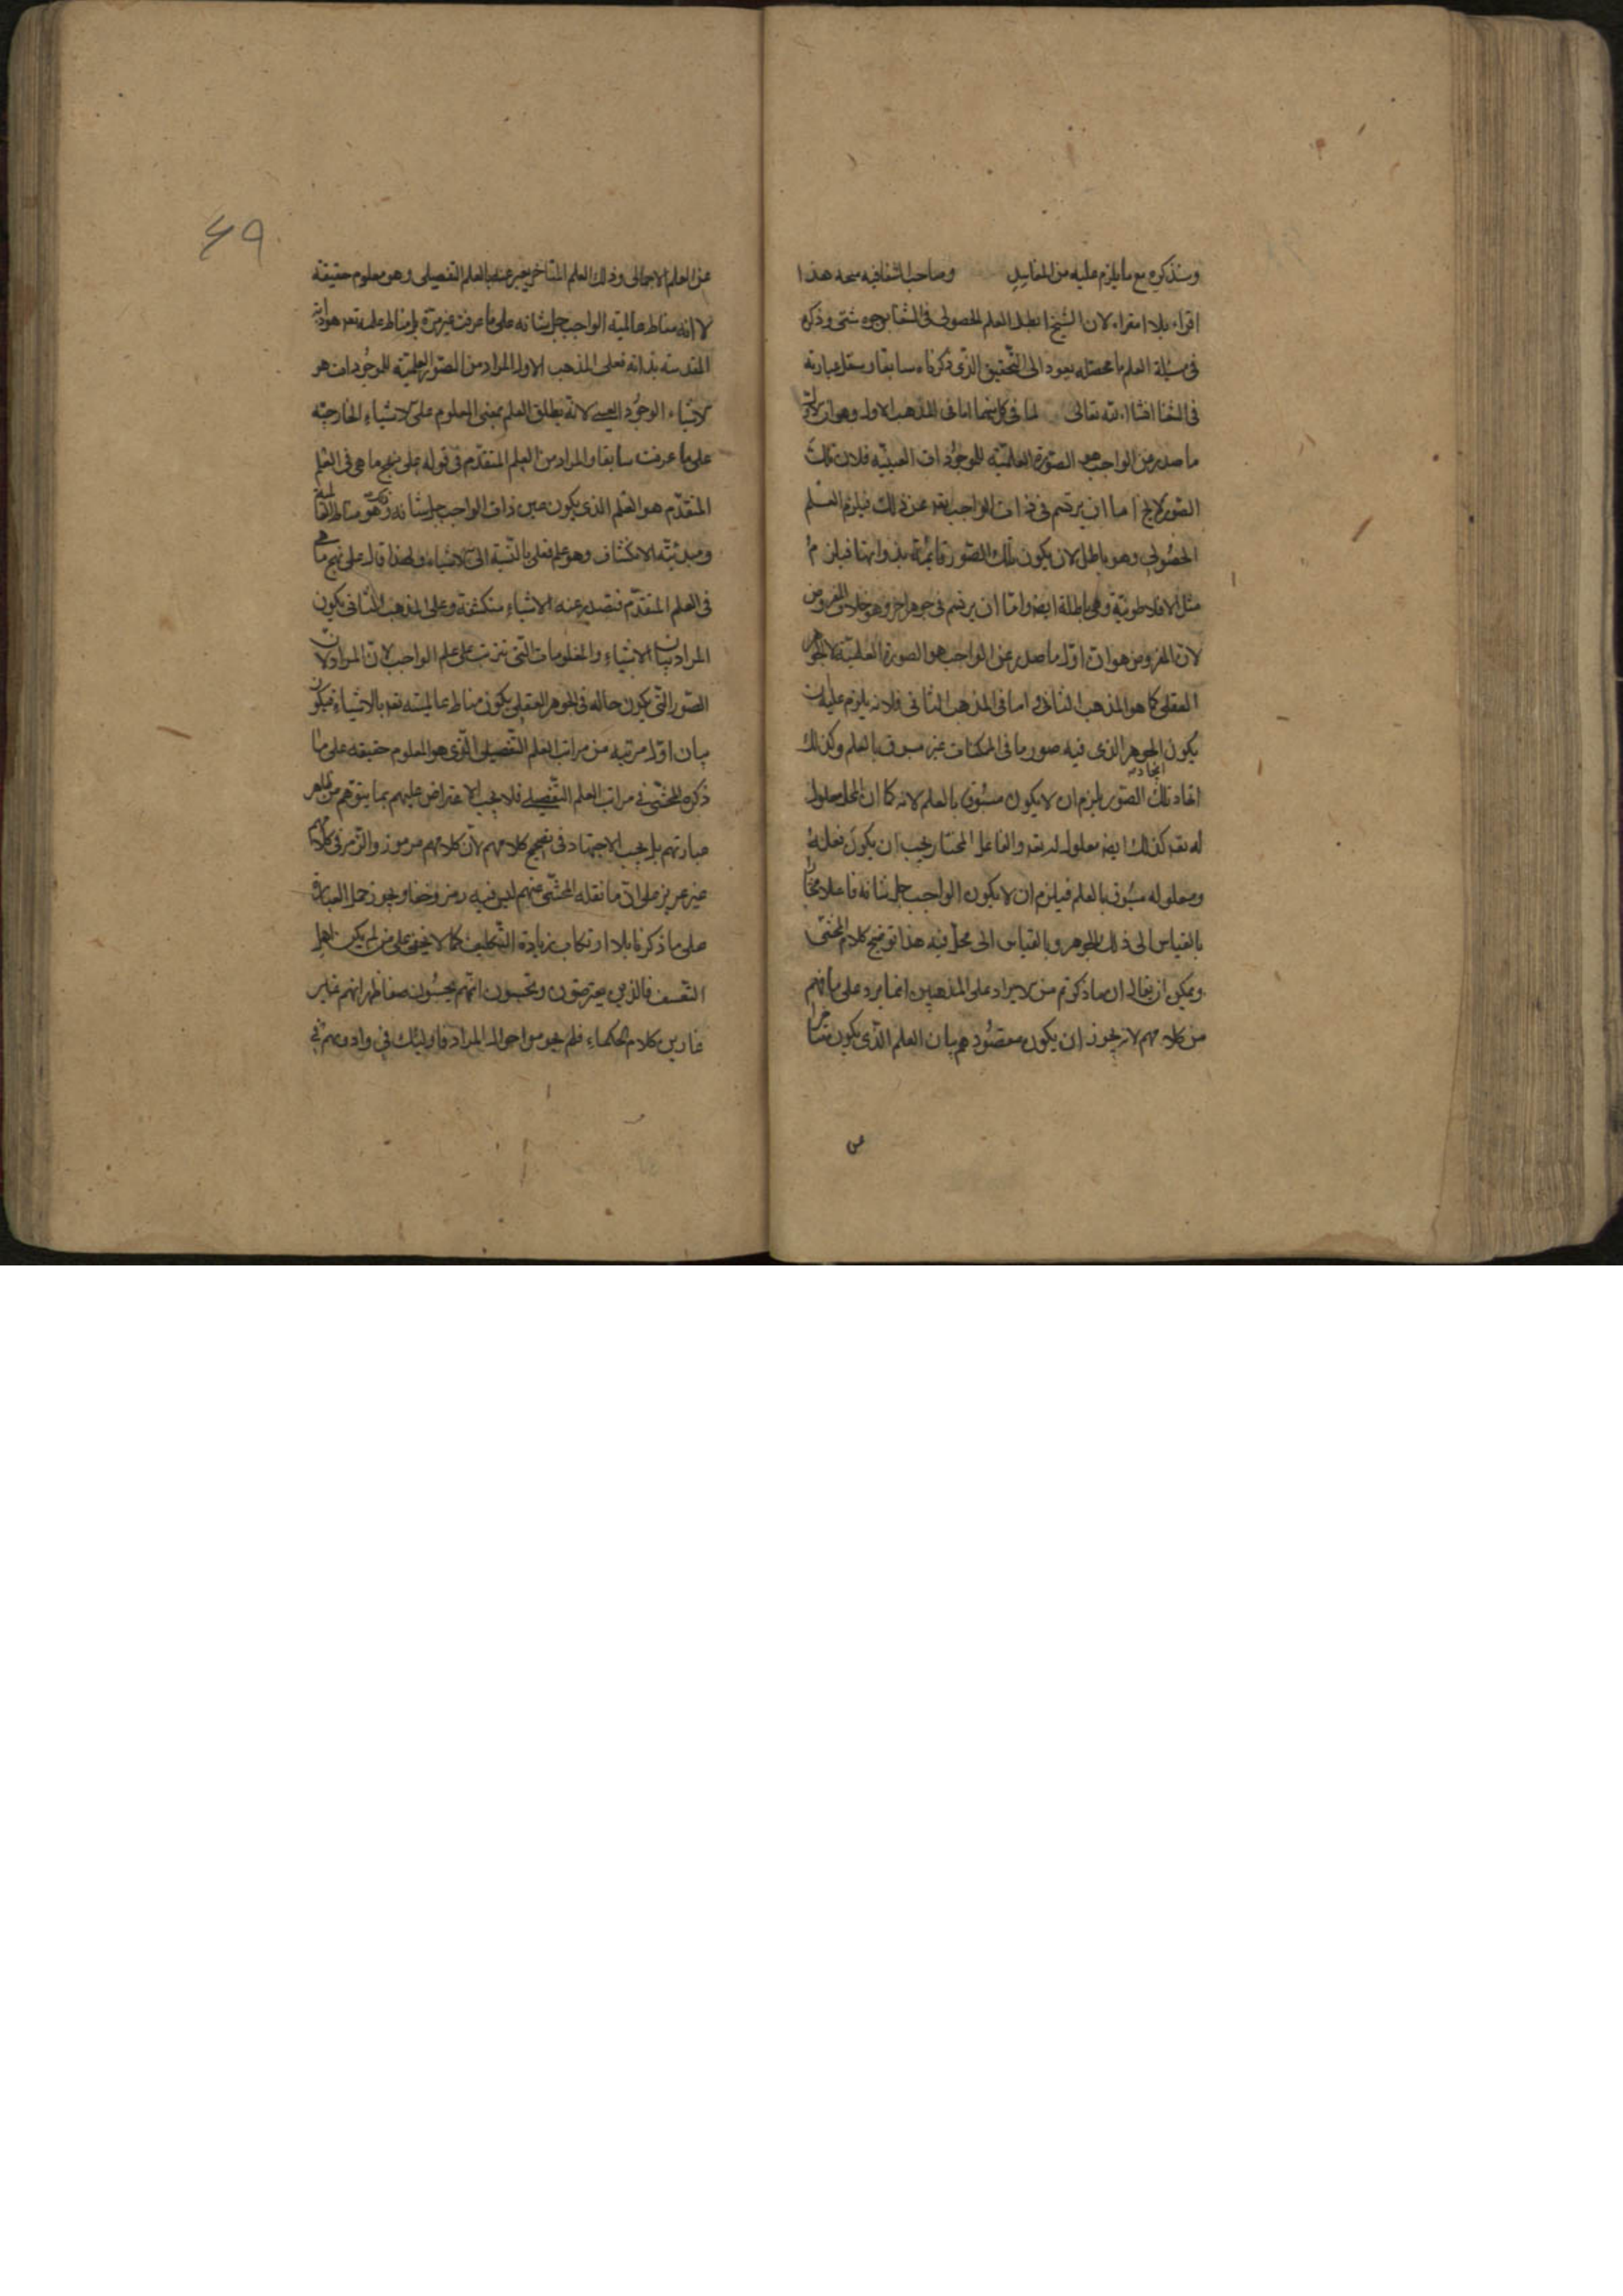 وسنذكره مع ما يلزم عليه من المفاسد وصاحب الشفا فيه هذا
افتراء بلا امتراء لان الشيخ ابطل العلم الحصولى فى الشفا بوجوه شتى وذكره
فى مسئلة العلم ما محصله يعود الى التحقيق الذى ذكرناه سابقا وسننقل عبارته
فى الشفا انشاء الله تعالى لما فى كل منهما اما فى المذهب الاول وهو ان اول
ما صدر من الواجب هو الصورة العلمية للموجودات العينية فلان تلك
الصور لا يخ اما ان يرتسم فى ذات الواجب تعه عن ذلك فيلزم العلم
الحصولى وهو باطل لان يكون تلك الصور قائمة بذواتها فيلزم
مثل الافلاطونية وهى باطلة ايضا واما ان يرتسم فى جوهر اخر وهو خلاف المفروض
لان المفروض هو ان اول ما صدر عن الواجب هو الصورة العلمية لا الجوهر
العقلى كما هو المذهب الثانى واما فى المذهب الثانى فلانه يلزم عليه ان
يكون الجوهر الذى فيه صور ما فى الممكنات غير مسبوق بالعلم وكذلك
ايجاد تلك الصور يلزم ان لا يكون مسبوق بالعلم لانه كما ان المحل معلول
ايجاده
له تعه كذلك ايضا معلول له تعه والفاعل المختار يجب ان يكون فعله
ومعلوله مسبوق بالعلم فيلزم ان لا يكون الواجب جل شانه فاعلا مختارا
بالقياس الى ذلك الجوهر وبالقياس الى محل فيه هذا توضيح كلام المحشى
ويمكن ان يقال ان ما ذكرتم من الايراد على المذهبين انما يرد على ما فهم
من كلامهم لا يجوز ان يكون مقصودهم بيان العلم الذى يكون متاخرا
عن
٤٩
عن العلم الاجمالى وذلك العلم المتاخر يعبر عنه بالعلم التفصيلى وهو معلوم حقيقة
لا انه مناط عالمية الواجب جل شانه على ما عرفت غير مرة بل مناط علمه تعه هو ذاته
المقدسة بذاته فعلى المذهب الاول المراد من الصور العلمية للموجودات هو
الاشياء الوجود العينى لانه يطلق العلم بمعنى المعلوم على الاشياء الخارجية
على ما عرفت سابقا والمراد من العلم المتقدم فى قوله على نهج ما هى فى العلم
المتقدم هو العلم الذى يكون عين ذات الواجب جل شانه وهو مناط العالمية
ومبدئية الانكشاف وهو علم فعلى بالنسبة الى الاشياء ولهذا قال على نهج ما هى
فى العلم المتقدم فتصدر عنه الاشياء منكشفة وعلى المذهب الثانى يكون
المراد بيان الاشياء والمعلومات التى تترتب على علم الواجب لان المراد ان
الصور التى يكون حاله فى الجوهر العقلى يكون مناط عالميته تعه بالاشياء فيكون
بيان اول مرتبه من مراتب العلم التفصيلى الذى هو المعلوم حقيقه على ما
ذكره المحشى فى مراتب العلم التفصيلى فلا يجب الاعتراض عليهم بما يتوهم من ظاهر
عبارتهم بل يجب الاجتهاد فى تصحيح كلامهم لان كلامهم مرموز والرمز فى كلامهم
غير عزيز على ان ما نقله المحشى عنهم ليس فيه رمز وخفا ويجوز حمل العبارة
على ما ذكرنا بلا ارتكاب زيادة التكليف كما لا يخفى على من لم يكن اهل
التعسف فالذين يعترضون ويحسبون انهم يحسنون صنعا
كلام الحكماء فلم حوالى المراد فاولئك فى وادوهم فى